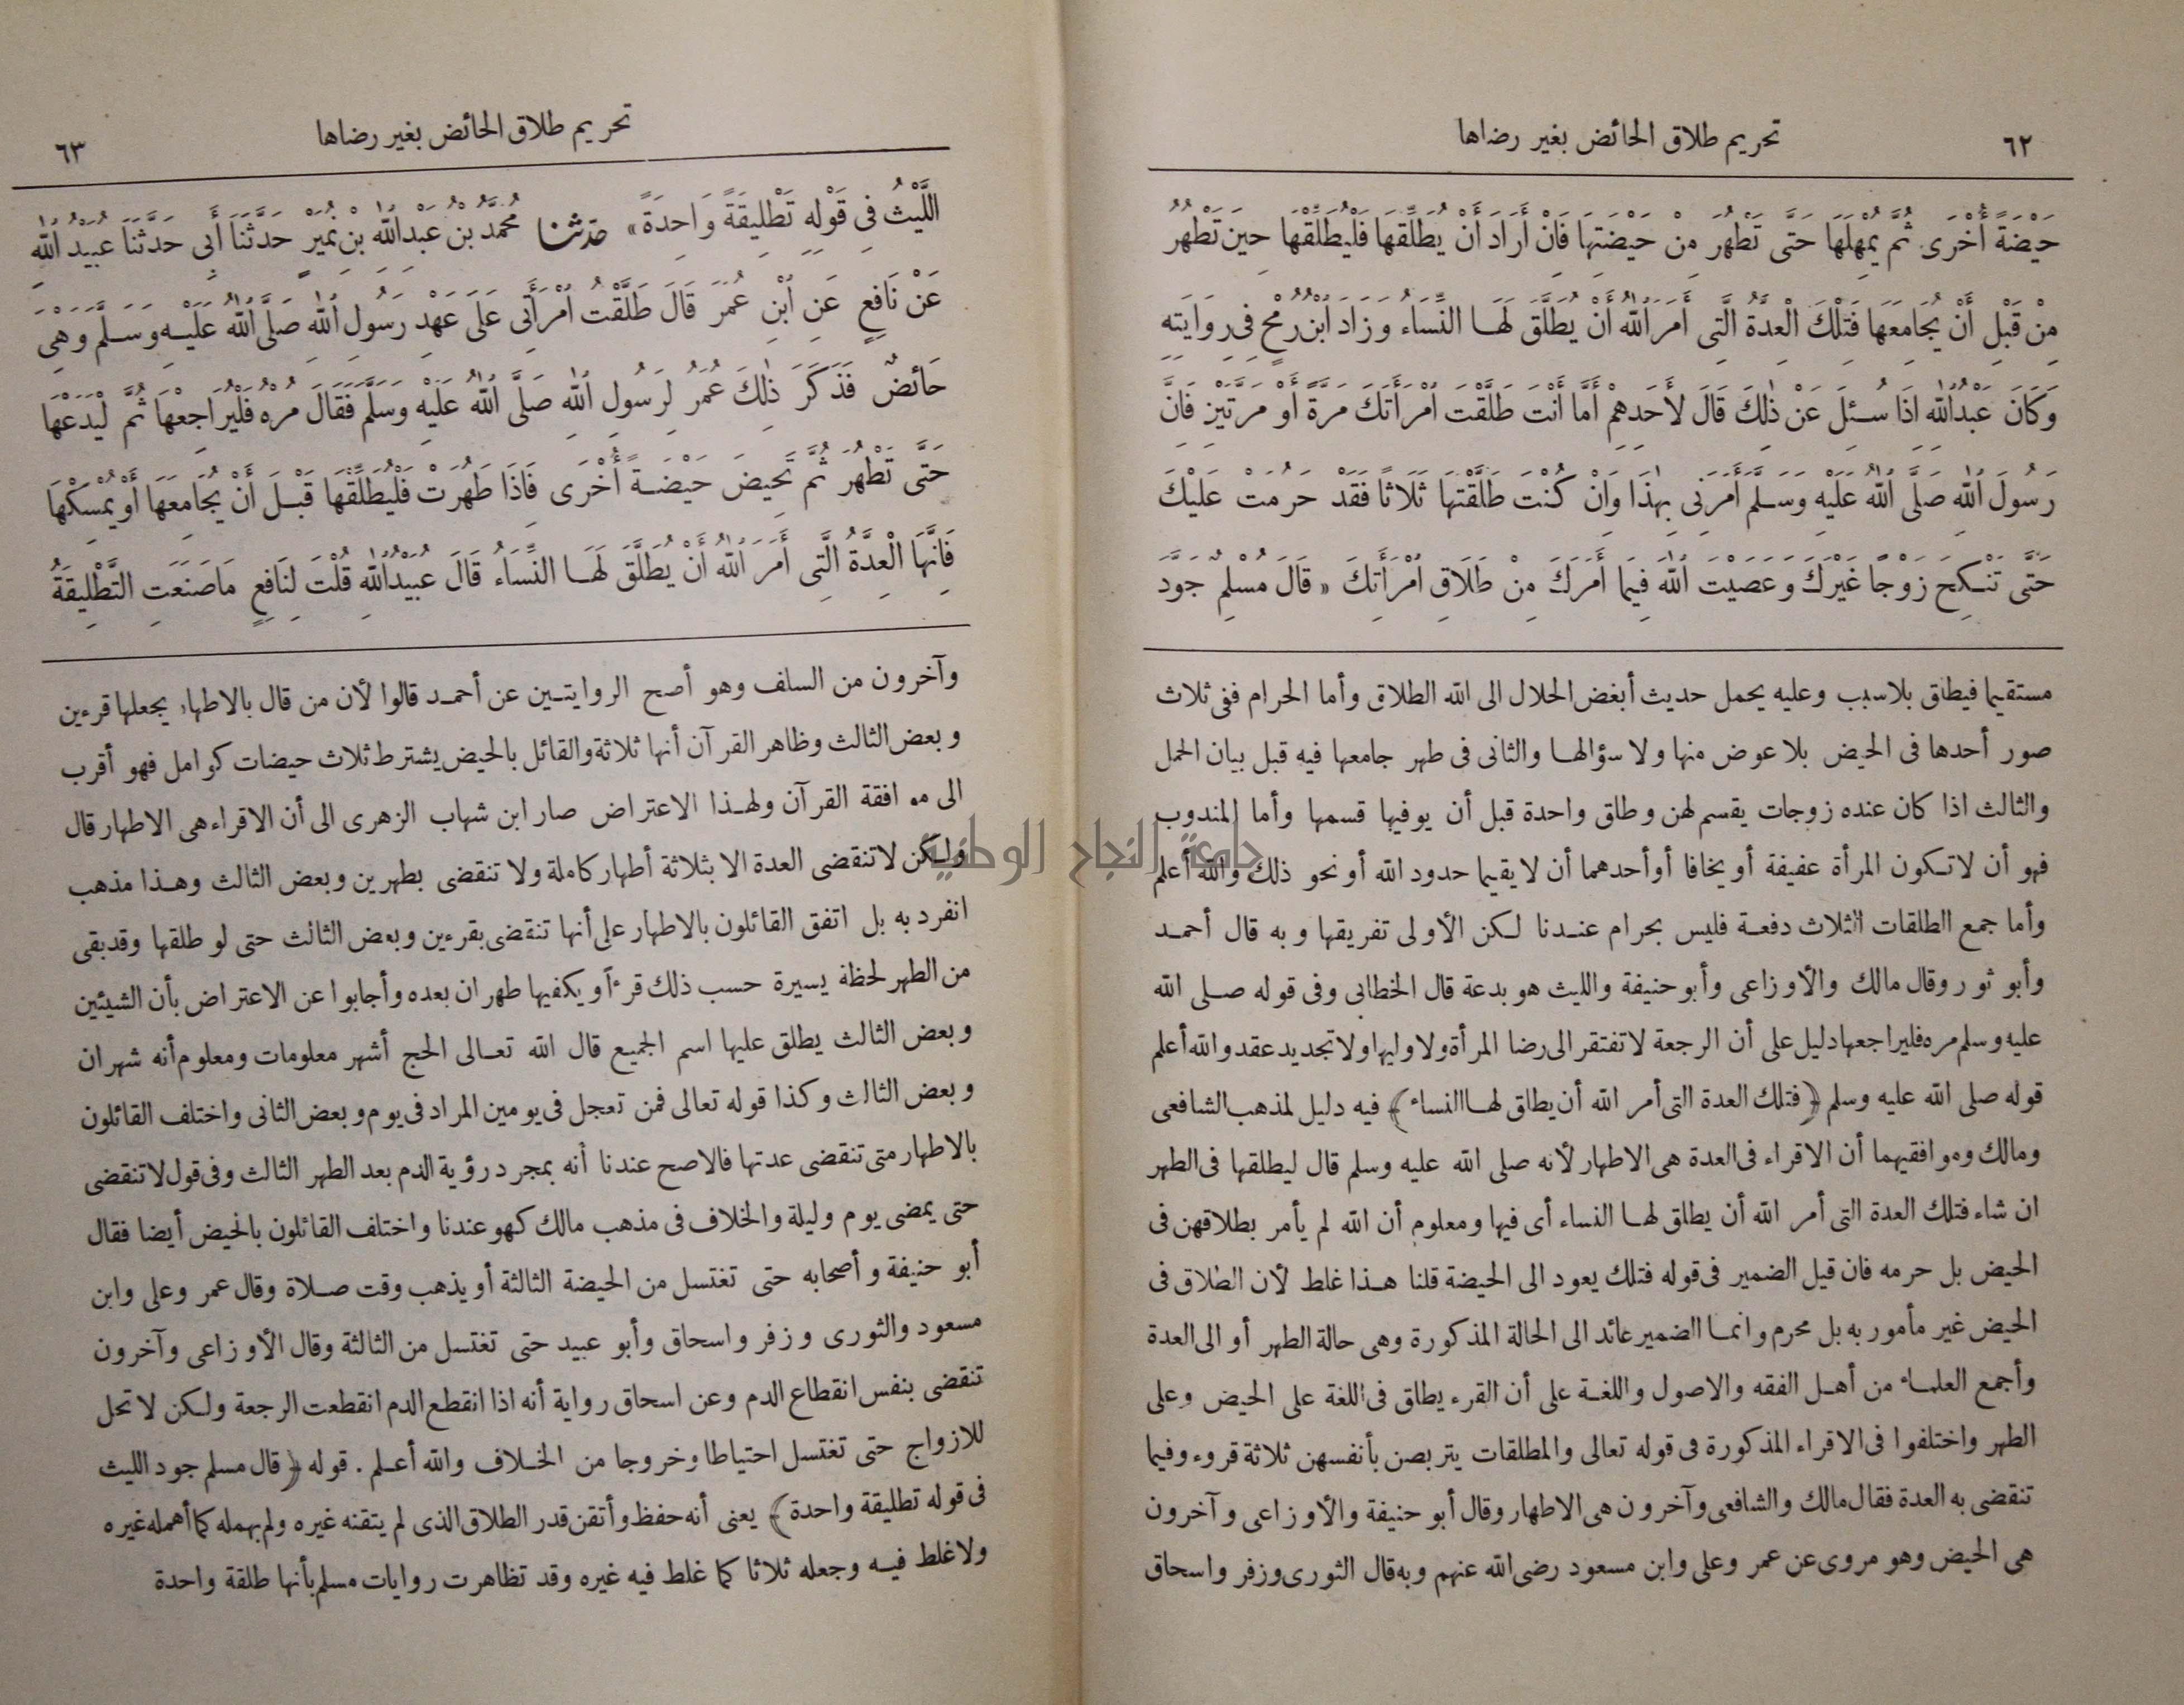 ٦٢
تحريم طلاق الحائض بغير رضاها
حَيْضَةً أُخْرَى ثُمَّ يُمْهِلَهَا حَتَّى تَطْهُرَ مِنْ حَيْضَتِهَا فَانْ أَرَادَ أَنْ يُطَلِّقَهَا فَلْيُطَلِّقْهَا حِينَ تَطْهُرُ
مِنْ قَبْلِ أَنْ يُجَامِعَهَا فَتِلْكَ الْعِدَّةُ الَّتِى أَمَرَ اللّٰهُ أَنْ يُطَلَّقَ لَهَا النِّسَاءُ وَزَادَ ابْنُ رُمْحٍ فِى رِوَايَتِهِ
وَكَانَ عَبْدُ اللّٰهِ اذَا سُئِلَ عَنْ ذٰلِكَ قَالَ لأَحَدِهِمْ أَمَّا أَنْتَ طَلَّقْتَ امْرَأَتَكَ مَرَّةً أَوْ مَرَّتَيْنِ فَانَّ
رَسُولَ اللّٰهِ صَلَّى اللّٰهُ عَلَيْهِ وَسَلَّمَ أَمَرَنِى بِهٰذَا وَانْ كُنْتَ طَلَّقْتَهَا ثَلَاثًا فَقَدْ حَرُمَتْ عَلَيْكَ
حَتَّى تَنْكِحَ زَوْجًا غَيْرَكَ وَعَصَيْتَ اللّٰهَ فِيمَا أَمَرَكَ مِنْ طَلَاقِ امْرَأَتِكَ «قَالَ مُسْلِمٌ جَوَّدَ
مستقيما فيطلق بلا سبب وعليه يحمل حديث أبغض الحلال الى الله الطلاق وأما الحرام ففى ثلاث
صور أحدها فى الحيض بلا عوض منها ولا سؤالها والثانى فى طهر جامعها فيه قبل بيان الحمل
والثالث اذا كان عنده زوجات يقسم لهن وطلق واحدة قبل أن يوفيها قسمها وأما المندوب
فهو أن لا تكون المرأة عفيفة أو يخافا أو أحدهما أن لا يقيما حدود الله أو نحو ذلك والله أعلم
وأما جمع الطلقات الثلاث دفعة فليس بحرام عندنا لكن الأولى تفريقها وبه قال أحمد
وأبو ثور وقال مالك والأوزاعى وأبو حنيفة والليث هو بدعة قال الخطابى وفى قوله صلى الله
عليه وسلم مره فليراجعها دليل على أن الرجعة لا تفتقر الى رضا المرأة ولا وليها ولا تجديد عقد والله أعلم
قوله صلى الله عليه وسلم ﴿فتلك العدة التى أمر الله أن يطلق لها النساء﴾ فيه دليل لمذهب الشافعى
ومالك وموافقيهما أن الاقراء فى العدة هى الاطهار لأنه صلى الله عليه وسلم قال ليطلقها فى الطهر
ان شاء فتلك العدة التى أمر الله أن يطلق لها النساء أى فيها ومعلوم أن الله لم يأمر بطلاقهن فى
الحيض بل حرمه فان قيل الضمير فى قوله فتلك يعود الى الحيضة قلنا هذا غلط لأن الطلاق فى
الحيض غير مأمور به بل محرم وانما الضمير عائد الى الحالة المذكورة وهى حالة الطهر أو الى العدة
وأجمع العلماء من أهل الفقه والاصول واللغة على أن القرء يطلق فى اللغة على الحيض وعلى
الطهر واختلفوا فى الاقراء المذكورة فى قوله تعالى والمطلقات يتربصن بأنفسهن ثلاثة قروء وفيما
تنقضى به العدة فقال مالك والشافعى وآخرون هى الاطهار وقال أبو حنيفة والأوزاعى وآخرون
هى الحيض وهو مروى عن عمر وعلى وابن مسعود رضى الله عنهم وبه قال الثورى وزفر واسحاق
تحريم طلاق الحائض بغير رضاها
٦٣
اللَّيْثُ فِى قَوْلِهِ تَطْلِيقَةً وَاحِدَةً» حدثنا مُحَمَّدُ بْنُ عَبْدِ اللّٰهِ بْنِ نُمَيْرٍ حَدَّثَنَا أَبِى حَدَّثَنَا عُبَيْدُ اللّٰهِ
عَنْ نَافِعٍ عَنِ ابْنِ عُمَرَ قَالَ طَلَّقْتُ امْرَأَتِى عَلَى عَهْدِ رَسُولِ اللّٰهِ صَلَّى اللّٰهُ عَلَيْهِ وَسَلَّمَ وَهْىَ
حَائِضٌ فَذَكَرَ ذٰلِكَ عُمَرُ لِرَسُولِ اللّٰهِ صَلَّى اللّٰهُ عَلَيْهِ وَسَلَّمَ فَقَالَ مُرْهُ فَلْيُرَاجِعْهَا ثُمَّ لْيَدَعْهَا
حَتَّى تَطْهُرَ ثُمَّ تَحِيضَ حَيْضَةً أُخْرَى فَاذَا طَهُرَتْ فَلْيُطَلِّقْهَا قَبْلَ أَنْ يُجَامِعَهَا أَوْ يُمْسِكْهَا
فَانَّهَا الْعِدَّةُ الَّتِى أَمَرَ اللّٰهُ أَنْ يُطَلَّقَ لَهَا النِّسَاءُ قَالَ عُبَيْدُ اللّٰهِ قُلْتُ لِنَافِعٍ مَا صَنَعَتِ التَّطْلِيقَةُ
وآخرون من السلف وهو أصح الروايتين عن أحمد قالوا لأن من قال بالاطهار يجعلها قرءين
وبعض الثالث وظاهر القرآن أنها ثلاثة والقائل بالحيض يشترط ثلاث حيضات كوامل فهو أقرب
الى موافقة القرآن ولهذا الاعتراض صار ابن شهاب الزهرى الى أن الاقراء هى الاطهار قال
ولكن لا تنقضى العدة الا بثلاثة أطهار كاملة ولا تنقضى بطهرين وبعض الثالث وهذا مذهب
انفرد به بل اتفق القائلون بالاطهار على أنها تنقضى بقرءين وبعض الثالث حتى لو طلقها وقد بقى
من الطهر لحظة يسيرة حسب ذلك قرءاً ويكفيها طهران بعده وأجابوا عن الاعتراض بأن الشيئين
وبعض الثالث يطلق عليها اسم الجميع قال الله تعالى الحج أشهر معلومات ومعلوم أنه شهران
وبعض الثالث وكذا قوله تعالى فمن تعجل فى يومين المراد فى يوم وبعض الثانى واختلف القائلون
بالاطهار متى تنقضى عدتها فالاصح عندنا أنه بمجرد رؤية الدم بعد الطهر الثالث وفى قول لا تنقضى
حتى يمضى يوم وليلة والخلاف فى مذهب مالك كهو عندنا واختلف القائلون بالحيض أيضا فقال
أبو حنيفة وأصحابه حتى تغتسل من الحيضة الثالثة أو يذهب وقت صلاة وقال عمر وعلى وابن
مسعود والثورى وزفر واسحاق وأبو عبيد حتى تغتسل من الثالثة وقال الأوزاعى وآخرون
تنقضى بنفس انقطاع الدم وعن اسحاق رواية أنه اذا انقطع الدم انقطعت الرجعة ولكن لا تحل
للازواج حتى تغتسل احتياطا وخروجا من الخلاف والله أعلم . قوله ﴿قال مسلم جود الليث
فى قوله تطليقة واحدة﴾ يعنى أنه حفظ وأتقن قدر الطلاق الذى لم يتقنه غيره ولم يهمله كما أهمله غيره
ولا غلط فيه وجعله ثلاثا كما غلط فيه غيره وقد تظاهرت روايات مسلم بأنها طلقة واحدة
جامعة النجاح الوطنية